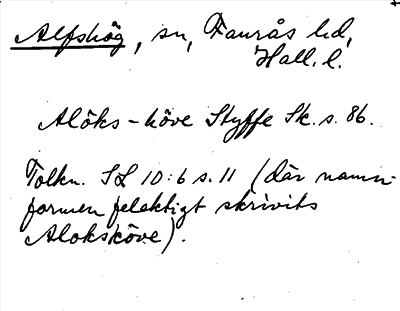 Alfshög, sn, Faurås hd,
Hall. l.
Alöks-höve Styffe Sk. s. 86.
Tolkn. SL 10:6 s. 11 (där namn-
formen felaktigt skrivits
Aloksköve).